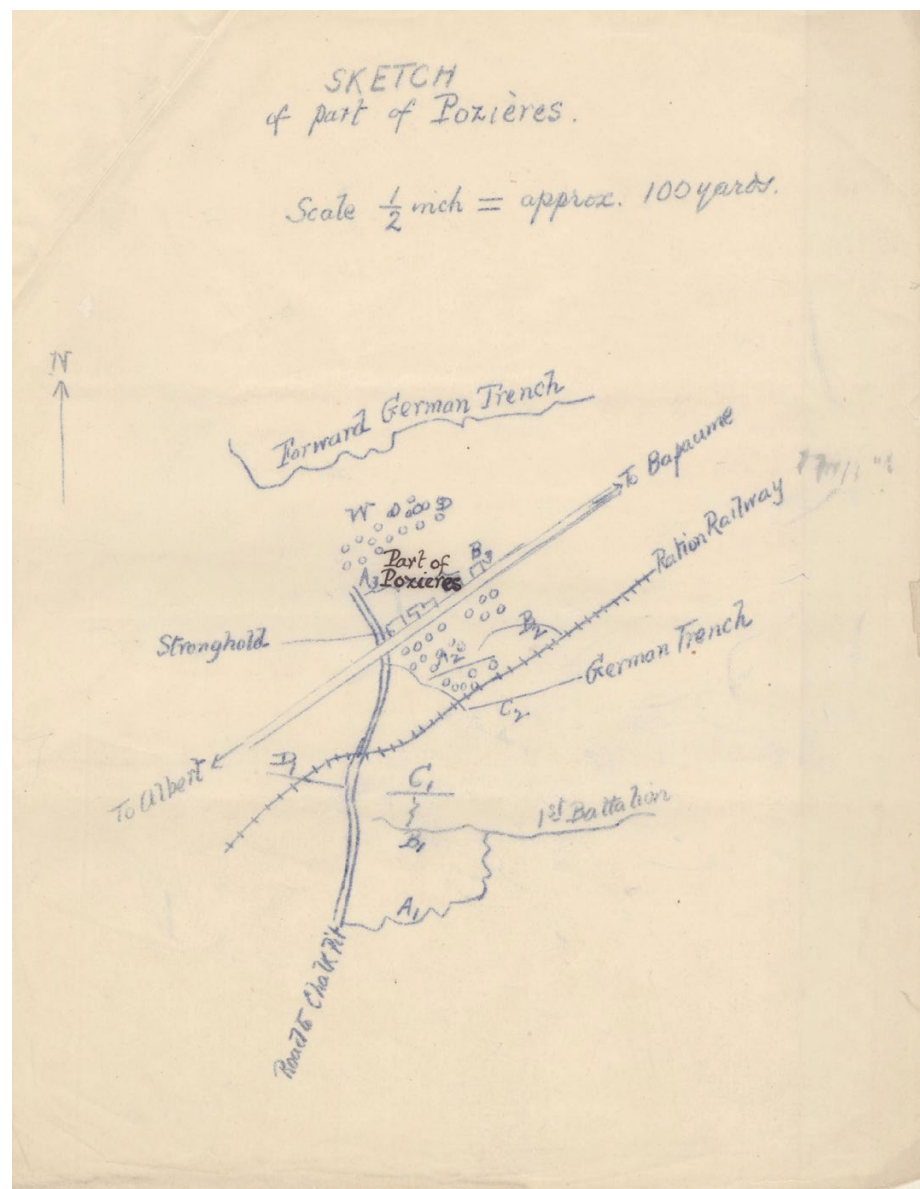 SKETCH
of part of Pozières.
Scale 1/2 inch = approx. 100 yards.
N
Forward German Trench
To Bapaume
W O O D
Ration Railway
B3
Part of
Pozieres
A3
Stronghold
B2
A2
German Trench
C2
D1
To Albert
C1
1st Battalion
B1
A1
Road to Chalk Pit